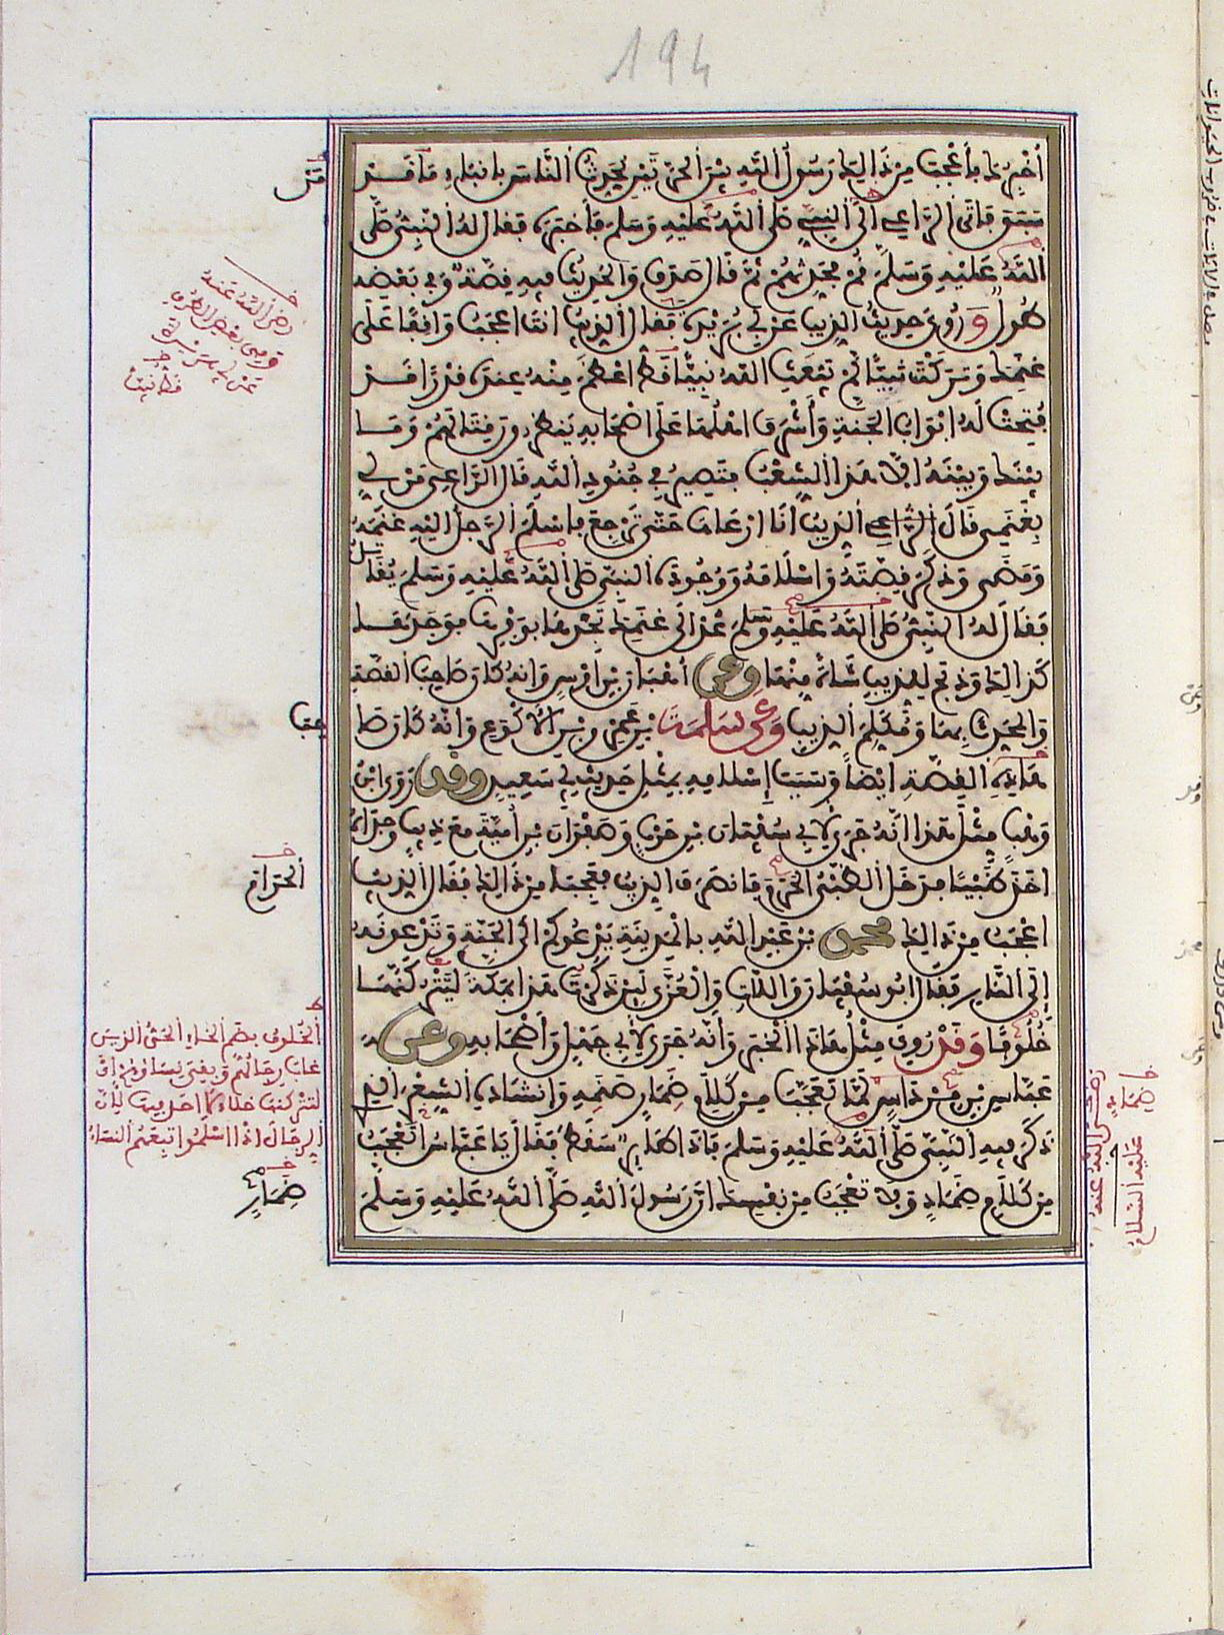 194
أُخْبِرُكَ بِأَعْجَبَ مِن ذَالِكَ رَسُولُ اللَّهِ بَيْنَ الْحَرَّتَيْنِ يُحَدِّثُ النَّاسَ بِأَنْبَاءِ مَا قَدْ
سَبَقَ فَأَتَى الرَّاعِي إِلَى النَّبِيِّ صَلَّى اللَّهُ عَلَيْهِ وَسَلَّمَ فَأَخْبَرَهُ فَقَالَ لَهُ النَّبِيُّ صَلَّى
اللَّهُ عَلَيْهِ وَسَلَّمَ قُمْ فَحَدِّثْهُمْ ثُمَّ قَالَ صَدَقَ وَالْحَدِيثُ فِيهِ قِصَّةٌ وَفِي بَعْضِهِ
طُولٌ وَرُوِيَ حَدِيثُ الذِّيبِ عَنْ أَبِي هُرَيْرَةَ فَقَالَ الذِّيبُ أَنْتَ أَعْجَبُ وَاقِفًا عَلَى
غَنَمِكَ وَتَرَكْتَ نَبِيًّا لَمْ يَبْعَثِ اللَّهُ نَبِيًّا قَطُّ أَعْظَمَ مِنْهُ عِنْدَهُ قَدْرًا قَدْ
فُتِحَتْ لَهُ أَبْوَابُ الْجَنَّةِ وَأَشْرَفَ أَهْلُهَا عَلَى أَصْحَابِهِ يَنْظُرُونَ قِتَالَهُمْ وَمَا
بَيْنَكَ وَبَيْنَهُ إِلَّا هَذَا الشِّعْبُ فَتَصِيرُ فِي جُنُودِ اللَّهِ قَالَ الرَّاعِي مَنْ لِي
بِغَنَمِي قَالَ الذِّيبُ أَنَا أَرْعَاهَا حَتَّى تَرْجِعَ فَأَسْلَمَ الرَّجُلُ إِلَيْهِ غَنَمَهُ
وَمَضَى وَذَكَرَ قِصَّتَهُ وَإِسْلَامَهُ وَوُجُودَهُ النَّبِيَّ صَلَّى اللَّهُ عَلَيْهِ وَسَلَّمَ يُقَاتِلُ
فَقَالَ لَهُ النَّبِيُّ صَلَّى اللَّهُ عَلَيْهِ وَسَلَّمَ عُدْ إِلَى غَنَمِكَ تَجِدْهَا بِوَفْرِهَا فَوَجَدَهَا
كَذَالِكَ وَذَبَحَ لِلذِّيبِ شَاةً مِنْهَا وَعَنْ أُهْبَانَ بْنِ أَوْسٍ وَأَنَّهُ كَانَ صَاحِبَ الْقِصَّةِ
وَالْمُحَدِّثَ بِهَا وَمُكَلِّمَ الذِّيبِ وَعَنْ سَلَمَةَ بْنِ عَمْرِو بْنِ الْأَكْوَعِ وَأَنَّهُ كَانَ صَا
حِبَ
هَذِهِ الْقِصَّةِ أَيْضًا وَسَبَبَ إِسْلَامِهِ بِمِثْلِ حَدِيثِ أَبِي سَعِيدٍ وَقَدْ رَوَى ابْنُ
وَهْبٍ مِثْلَ هَذَا أَنَّهُ جَرَى لِأَبِي سُفْيَانَ بْنِ حَرْبٍ وَصَفْوَانَ بْنِ أُمَيَّةَ مَعَ ذِيبٍ وَجَدَاهُ
أَخَذَ ظَبْيًا فَدَخَلَ الظَّبْيُ الْحَرَمَ فَانْصَرَفَ الذِّيبُ فَعَجِبَا مِنْ ذَالِكَ فَقَالَ الذِّيبُ
أَعْجَبُ مِنْ ذَالِكَ مُحَمَّدُ بْنُ عَبْدِ اللَّهِ بِالْمَدِينَةِ يَدْعُوكُمْ إِلَى الْجَنَّةِ وَتَدْعُونَهُ
إِلَى النَّارِ فَقَالَ أَبُو سُفْيَانَ وَاللَّاتِ وَالْعُزَّى لَئِنْ ذَكَرْتَ هَذَا بِمَكَّةَ لَتَتْرُكَنَّهَا
خُلُوفًا وَقَدْ رُوِيَ مِثْلُ هَذَا الْخَبَرِ وَأَنَّهُ جَرَى لِأَبِي جَهْلٍ وَأَصْحَابِهِ وَعَنْ
عَبَّاسِ بْنِ مِرْدَاسٍ لَمَّا تَعَجَّبَ مِنْ كَلَامِ ضِمَارٍ صَنَمِهِ وَإِنْشَادِهِ الشِّعْرَ الَّذِي
ذَكَرَ فِيهِ النَّبِيَّ صَلَّى اللَّهُ عَلَيْهِ وَسَلَّمَ فَإِذَا طَائِرٌ سَقَطَ فَقَالَ يَا عَبَّاسُ أَتَعْجَبُ
مِنْ كَلَامِ ضِمَارٍ وَلَا تَعْجَبُ مِنْ نَفْسِكَ إِنَّ رَسُولَ اللَّهِ صَلَّى اللَّهُ عَلَيْهِ وَسَلَّمَ
رضي الله عنه
وفي بعض الطرق
عن أبي هريرة
الحرام
الخلوف بضم الخاء الحي الذين
غاب رجالهم وبقي نساؤهم
لأن
الرجال إذا أسلموا تبعهم النساء
ضِمَارِ
رضي الله عنه
عليه السلام